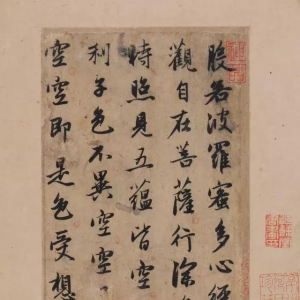 般若波羅蜜多心經
觀自在菩薩行深
時照見五蘊皆空
利子色不異空空
空空即是色受想